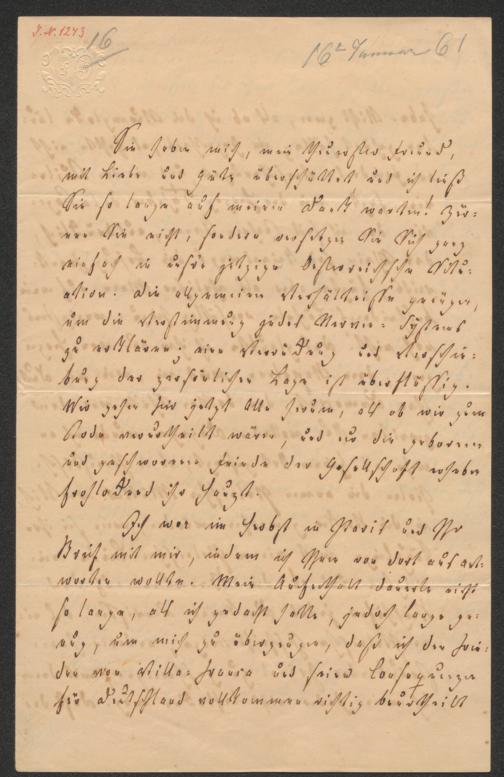 J.N. 1243
16
16t Januar 61
Sie haben mich, mein theuerster Freund,
mit Liebe und Güte überschüttet und ich ließ
Sie so lange auf meinen Dank warten! Zür-
nen Sie nicht, sondern versetzen Sie Sich ganz
einfach in unsre jetzige Oesterreichische Situ-
ation. Die allgemeinen Verhältnisse genügen,
um die Verstimmung jedes Nerven-Systems
zu erklären; eine Verrückung und Verschie-
bung der persönlichen Lage ist überflüssig.
Wir gehen hier jetzt Alle herum, als ob wir zum
Tode verurtheilt wären, und nur die geborenen
und geschworenen Feinde der Gesellschaft erheben
frohlockend ihr Haupt.
Ich war im Herbst in Paris und Ihr
Brief mit mir, indem ich Ihnen von dort aus ant-
worten wollte. Mein Aufenthalt dauerte nicht
so lange, als ich gedacht hatte, jedoch lange ge-
nug, um mich zu überzeugen, daß ich den Frie-
den von Villa-Franca und seine Consequenzen
für Deutschland vollkommen richtig beurtheilt